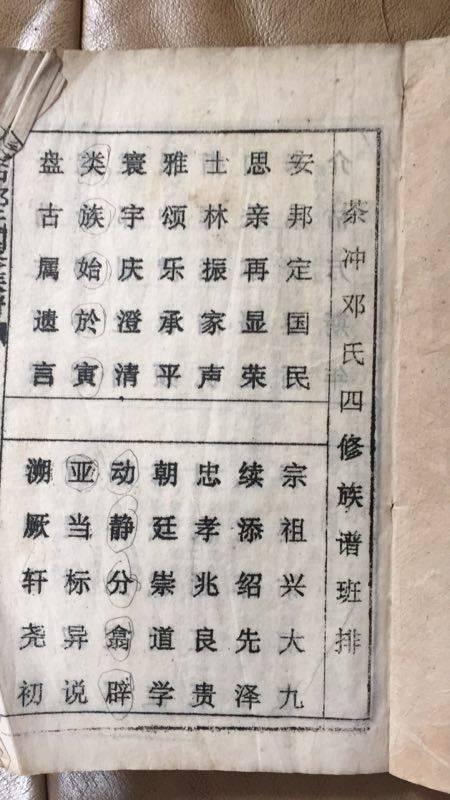 茶冲邓氏四修族谱班排
安邦定国民
思亲再显荣
士林振家声
雅颂乐承平
寰宇庆澄清
类族始於寅
盘古属遗言
宗祖兴大九
续添绍先泽
忠孝兆良贵
朝廷崇道学
动静分翕辟
亚当标异说
溯厥轩尧初